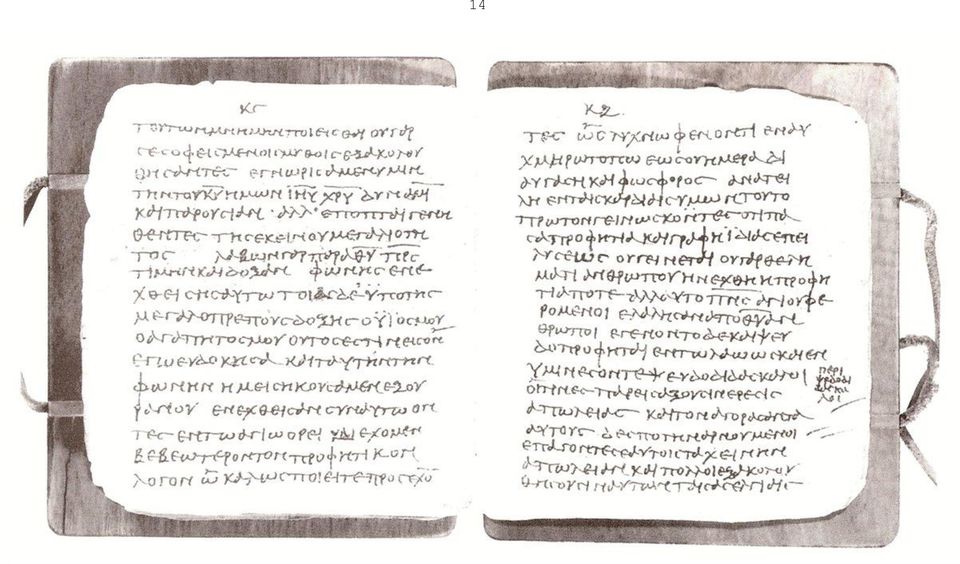 14
κϛ
τουτων μνημην ποιεισθαι ου γαρ
σεσοφεισμενοι μυθοις εξακολου
θησαντες εγνωρισαμεν υμιν
την του κ̅υ̅ ημων ι̅η̅υ̅ χ̅ρ̅υ̅ δυναμι
και παρουσιαν αλλ᾽ εποπται γενη
θεντες της εκεινου μεγαλιοτη
τος λαβων γαρ παρα θ̅υ̅ π̅ρ̅ς̅
τιμην και δοξαν φωνης ενε
χθεισης αυτω τοιασδε ϋπο της
μεγαλοπρεπους δοξης ο υϊος μου
ο αγαπητος μου ουτος εστιν εις ον
εγω ευδοκησα και ταυτην την
φωνην ημεις ηκουσαμεν εξ ου
ρανου ενεχθεισαν συν αυτω ον
τες εν τω αγιω ορει εχομεν
βεβεωτερον τον προφητικον
λογον ω καλως ποιειτε προσεχο̅
κζ
τες ως λυχνω φενοντι εν αυ
χμηρω τοπω εως ου ημερα δι
αυγαση και φωσφορος ανατει
λη εν ταις καρδιαις υμων τουτο
πρωτον γεινωσκοντες οτι πα
σα προφητια και γραφη ϊδιας επι
λυσεως ου γεινεται ου γαρ θελη
ματι ανθρωπου ηνεχθη προφη
τια ποτε αλλα υπο π̅ν̅ς̅ αγιου φε
ρομενοι ελαλησαν απο θ̅υ̅ αν
θρωποι εγενοντο δε και ψευ
δοπροφηται εν τω λαω ως και εν
υμιν εσοντε ψευδοδιδασκαλοι
οιτινες παρεισαξουσιν ερεσις
απωλειας και τον αγορασαντα
αυτους δεσποτην αρνουμενοι
επαγοντες εαυτοις ταχεινην
απωλειαν και πολλοι εξακολου
θησουσιν αυτων ταις ασελγιαις
περι
ψευδοδι
δασκα
λοι